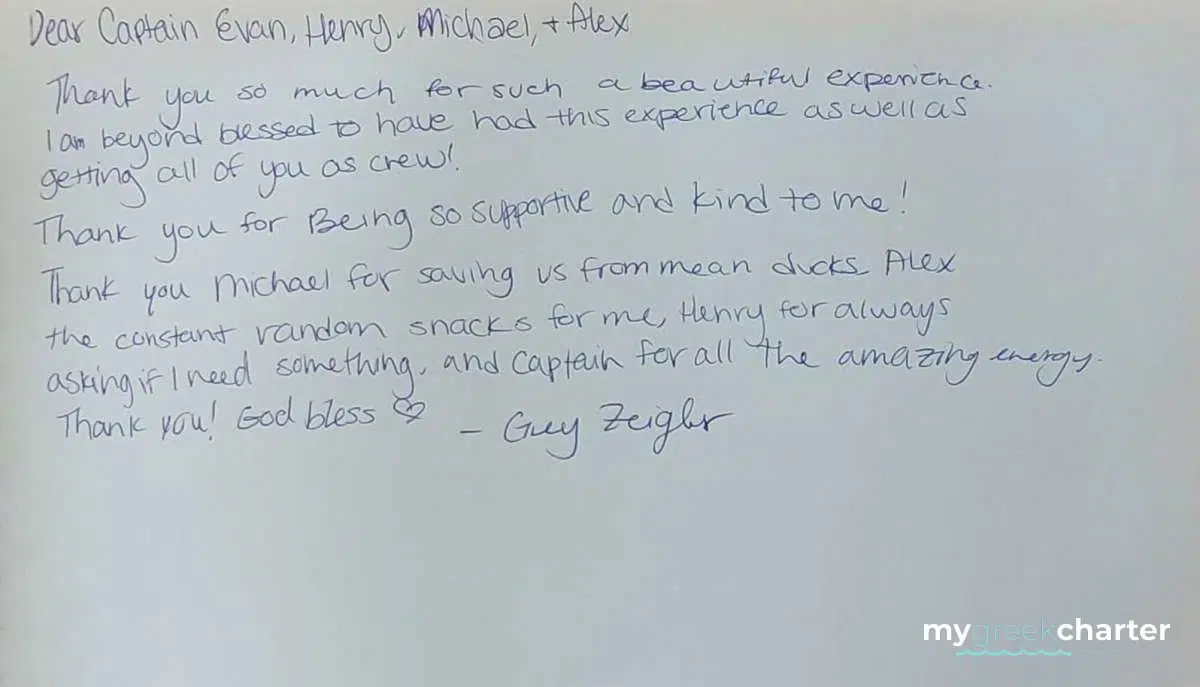 Dear Captain Evan, Henry, Michael, + Alex
Thank you so much for such a beautiful experience.
I am beyond blessed to have had this experience as well as
getting all of you as crew!
Thank you for Being so supportive and kind to me!
Thank you Michael for saving us from mean ducks Alex
the constant random snacks for me, Henry for always
asking if I need something, and Captain for all the amazing energy.
Thank you! God bless
- Guy Zeigler
mygreekcharter